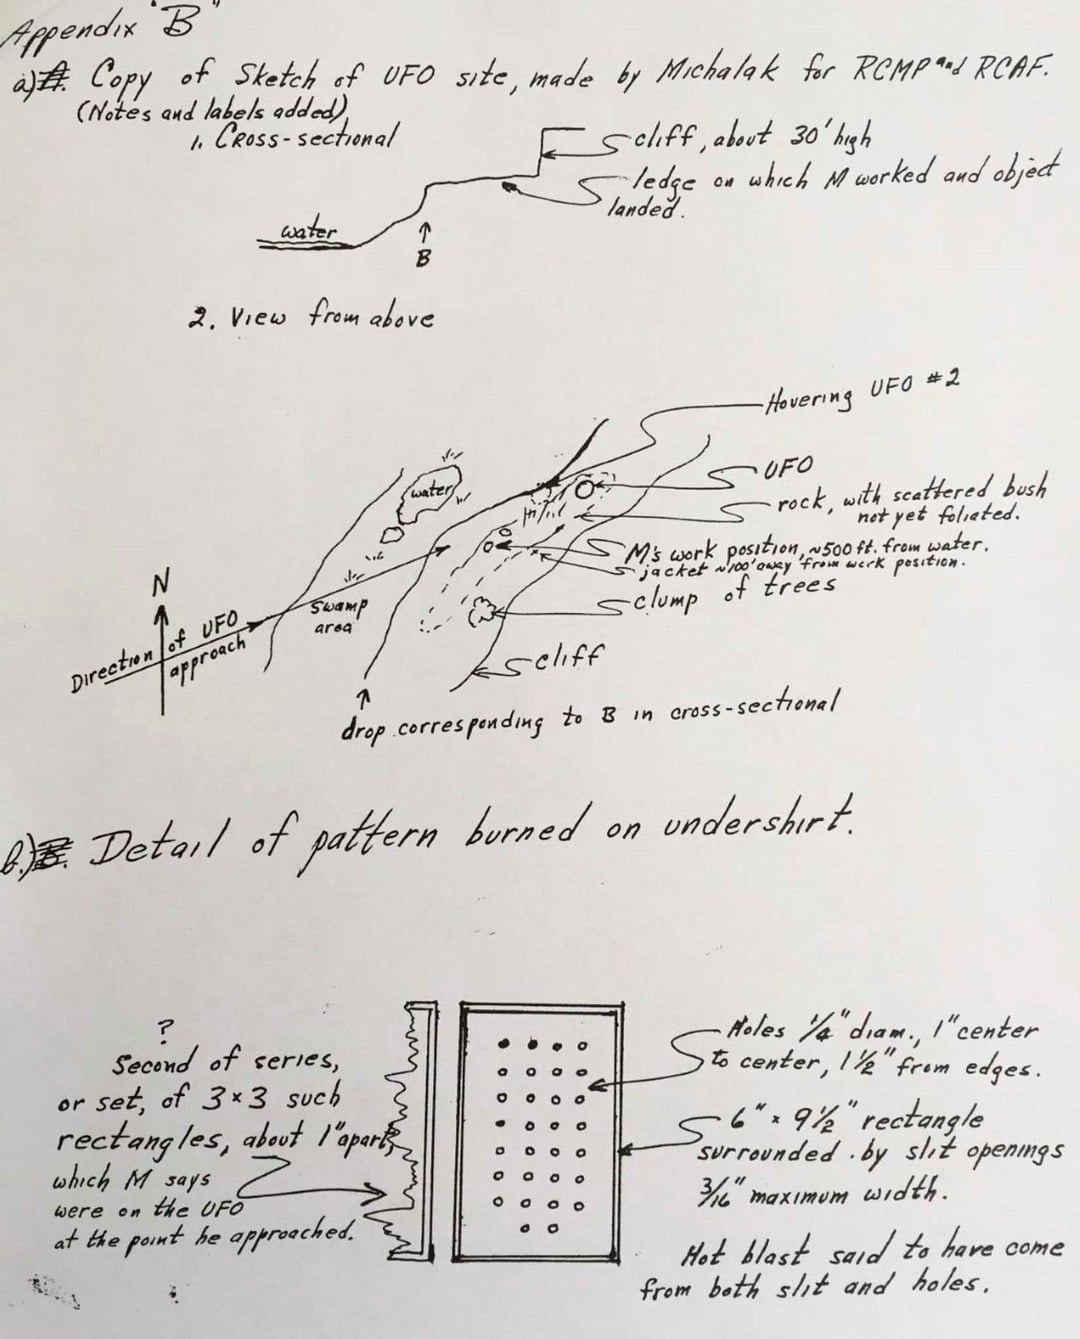 Appendix "B"
a) Copy of Sketch of UFO site, made by Michalak for RCMP and RCAF.
(Notes and labels added)
1. Cross-sectional
cliff, about 30' high
ledge on which M worked and object
landed.
water
B
2. View from above
Hovering UFO #2
UFO
water
rock, with scattered bush
not yet foliated.
M's work position, ~500 ft. from water.
jacket ~100' away from work position.
clump of trees
N
swamp
area
Direction of UFO
approach
cliff
drop corresponding to B in cross-sectional
b.) Detail of pattern burned on undershirt.
?
Second of series,
or set, of 3×3 such
rectangles, about 1" apart,
which M says
were on the UFO
at the point he approached.
Holes 1/4" diam., 1" center
to center, 1 1/2" from edges.
6" × 9 1/2" rectangle
surrounded by slit openings
3/16" maximum width.
Hot blast said to have come
from both slit and holes.